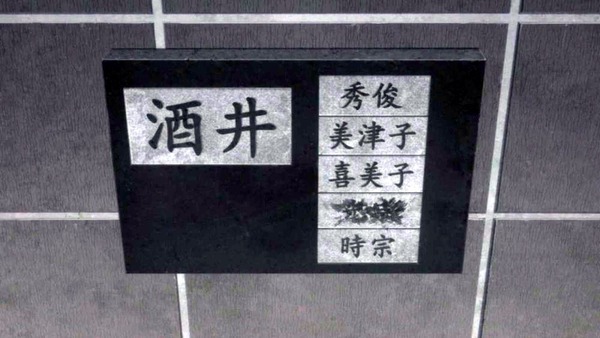 酒井
秀俊
美津子
喜美子
時宗